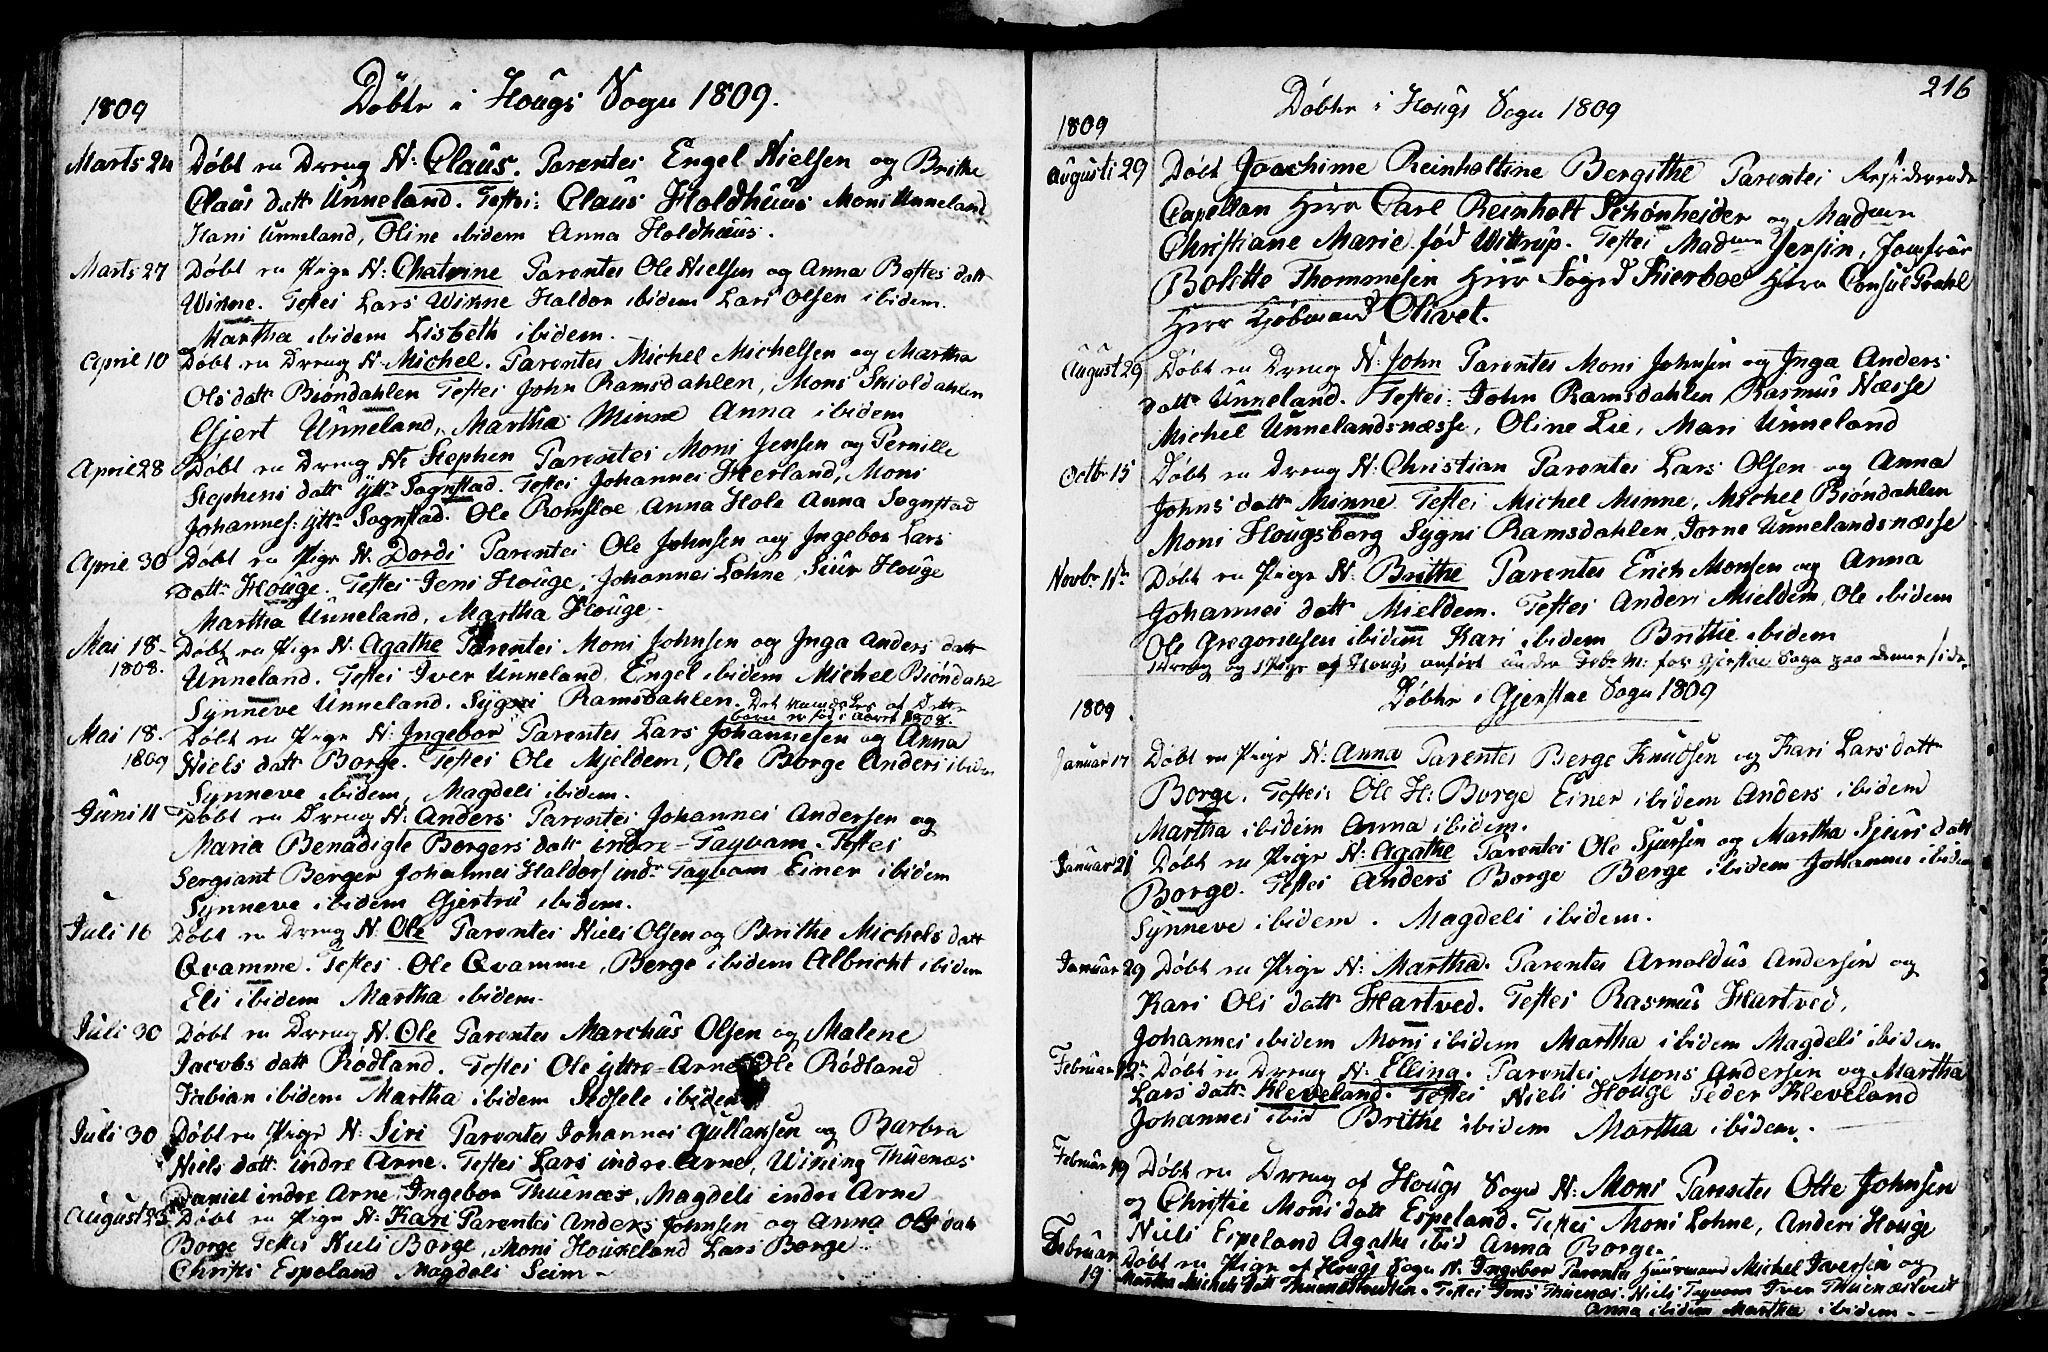 Döbte i Hougs Sogn 1809.
1809
Marts 24 Döbt en Dreng N: Claus. Parentes Engel Nielsen og Brithe
Claus datt Unneland. Testes: Claus Holdhuus Mons Unneland
Kari Unneland, Oline ibidem Anna Holdhuus.
Marts 27 Döbt en Pige N: Chatrine Parentes Ole Nielsen og Anna Bastes datt
Winne. Testes Lars Winne Haldor ibidem Lars Olsen ibidem
Martha ibidem Lisbeth ibidem.
April 10 Döbt en Dreng N. Michel. Parentes Michel Michelsen og Martha
Ols datt Biöndahlen Testes John Ramsdahlen, Mons Skioldahlen
Gjert Unneland, Martha Minne Anna ibidem
April 28 Döbt en Dreng N: Stephen Parentes Mons Jensen og Pernille
Stephens datt Ytt: Sognstad. Testes Johannes Herland, Mons
Johannes: Ytt: Sognstad. Ole Romsloe Anna Hole Anna Sognstad
April 30 Döbt en Pige N. Dordi Parentes Ole Johnsen og Ingebor Lars
Datt: Houge. Testes Jens Houge, Johannes Lohne, Siur Houge
Martha Unneland, Martha Houge.
Mai 18. Döbt en Pige N. Agathe Parentes Mons Johnsen og Inga Anders datt
1808. Unneland. Testes Iver Unneland Engel ibidem Michel Biöndahl
Synneve Unneland. Sygni Ramsdahlen. Det
barn er föd i Aaret 1808.
Mai 18. Döbt en Pige N: Ingebor Parentes Lars Johannesen og Anna
1809 Niels datt Borge. Testes Ole Mjeldem, Ole Borge Anders ibidem
Synneve ibidem, Magdeli ibidem.
Juni 11 Döbt en Dreng N. Anders Parentes Johannes Andersen og
Maria Benadigte Borgers datt indre-Taqvam. Testes
Sergiant Berger Johannes Haldors indr: Taqvam Einer ibidem
Synneve ibidem Gjertru ibidem.
Juli 16 Döbt en Dreng N. Ole Parentes Niels Olsen og Brithe Michels datt
Qvamme. Testes Ole Qvamme, Berge ibidem Albricht ibidem
Eli ibidem Martha ibidem.
Juli 30 Döbt en Dreng N. Ole Parentes Marchus Olsen og Malene
Jacobs datt Rodland. Testes Ole Yttre-Arne Ole Rödland
Fabian ibidem Martha ibidem Sidsele ibidem
Juli 30 Döbt en Pige N: Siri Parentes Johannes Gullansen og Barbra
Niels datt indre Arne. Testes Lars indre Arne, Wining Thuenæs
Daniel indre Arne, Ingebor Thuenæs, Magdeli indre Arne
August 25 Döbt en Pige N: Kari Parentes Anders Johnsen og Anna Ols datt
Borge Testes Niels Borge, Mons Houkeland Lars Borge
Christi Espeland Magdeli Seim
216
Döbte i Hougs Sogn 1809
1809
Augusti 29 Döbt Joachime Reinholtine Bergithe Parentes Residerende
Capellan Herr Carl Reinholt Schönheider og Madme
Christiane Marie föd Wittrup. Testes Madme Jersin, Jomfrue
Bolette Thommesen Herr Foged Kierboe Herr Consul Prahl
Herr Kjöbmand Olivet.
August 29 Döbt en Dreng N: John Parentes Mons Johnsen og Inga Anders
datt: Unneland. Testes: John Ramsdahlen Rasmus Næsse
Michel Unnelandsnæsse, Oline Lie, Mari Unneland
Octbr 15 Döbt en Dreng N: Christian Parentes Lars Olsen og Anna
Johns datt: Minne Testes Michel Minne, Michel Biöndahlen
Mons Hougsberg Sygni Ramsdahlen, Jorne Unnelandsnæsse
Novbr Döbt en Pige N: Brithe Parentes Erich Monsen og Anna
Johannes datt Mieldem. Testes Anders Mieldem, Ole ibidem
Ole Gregoriusen ibidem Kari ibidem Brithe ibidem
1 Dreng og 1 Pige af Hougs anfört under Febr M: for Gjerstae Sogn paa denne side.
Döbte i Gjerstae Sogn 1809
1809
Januar 17 Döbt en Pige N: Anna Parentes Berge Knudsen og Kari Lars datt
Borge. Testes: Ole H: Borge Einer ibidem Anders ibidem
Martha ibidem Anna ibidem.
Januar 21 Döbt en Pige N: Agathe Parentes Ole Sjursen og Martha Sjurs datt
Borge. Testes Anders Borge Berge ibidem Johannes ibidem
Synneve ibidem. Magdeli ibidem.
Januar 29 Döbt en Pige N: Martha. Parentes Arnoldus Andersen og
Kari Ols datt Hartved. Testes Rasmus Hartved,
Johannes ibidem Mons ibidem Martha ibidem Magdeli ibidem
Februar 12: Döbt en Dreng N: Elling. Parentes Mons Andersen og Martha
Lars datt: Kleveland. Testes Niels Houge Peder Kleveland
Johannes ibid Brithe ibidem Martha ibidem.
Februar 19 Döbt en Dreng af Hougs Sogn N: Mons Parentes Otte Johnsen
og Christie Mons datt Espeland. Testes Mons Lohne, Anders Houge
Niels Espeland Agathe ibid Anna Borge.
Februar Döbt en Pige af Hougs Sogn N: Ingebor Parentes Huusmand Michel Iversen og
19 Martha Michels datt. Testes Jens Thuenæs. Niels Taqvam Iver Thuenæstveit
Anna ibidem Martha ibidem.